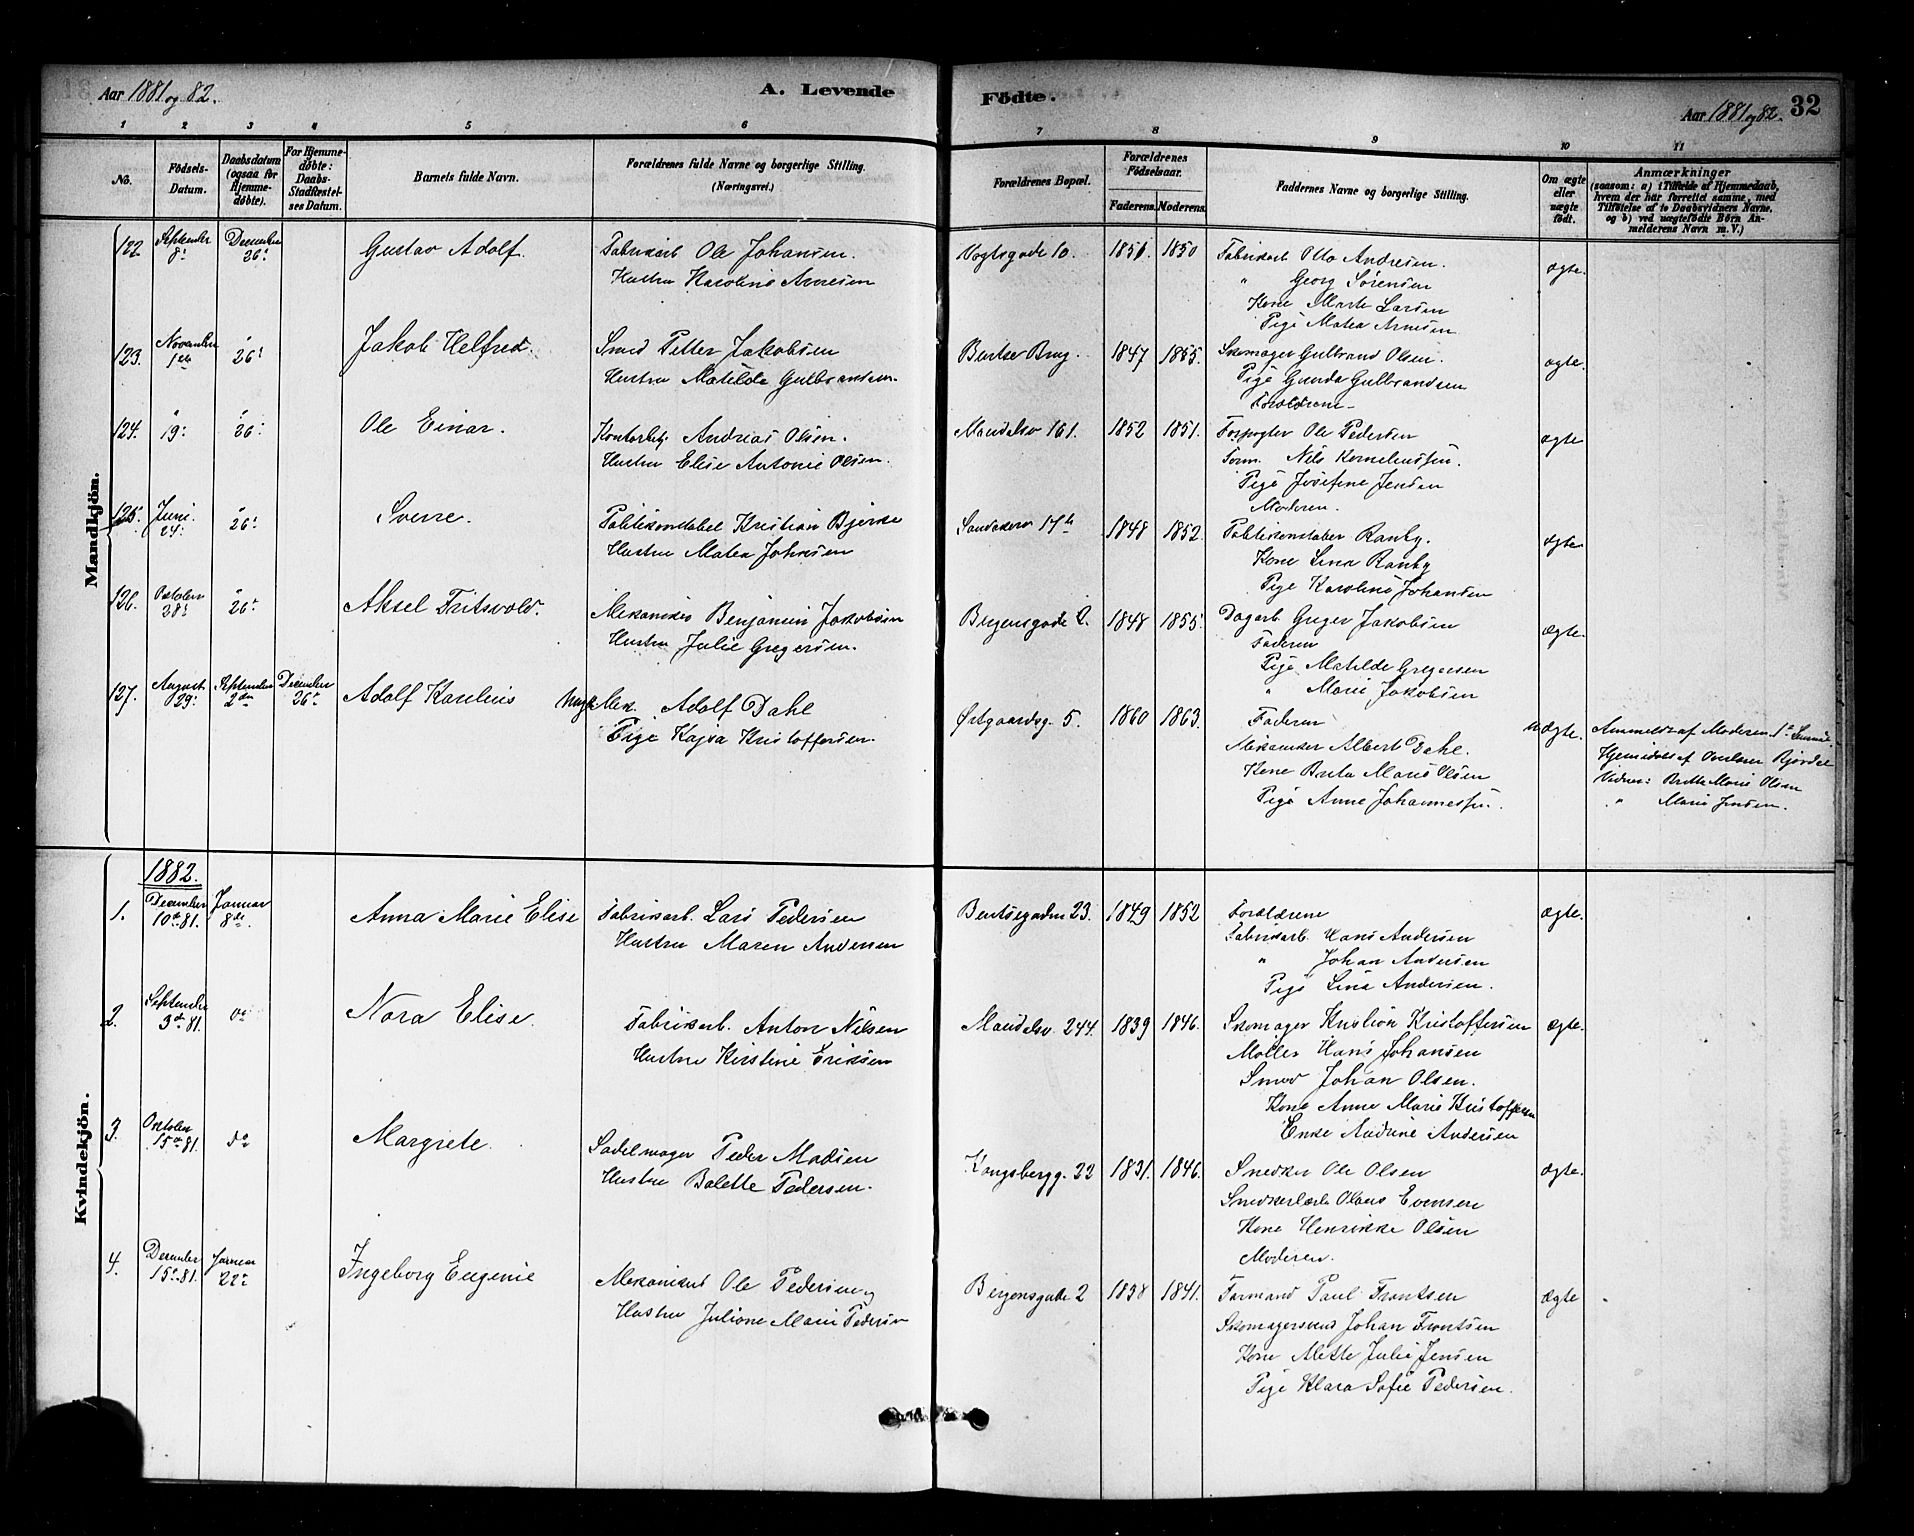 Aar 1881 og 82.
A. Levende
Födte.
Aar 1881 og 82.
32
1 2 3 4 5 6 7 8 9 10 11
No.
Födsels-
Datum.
Daabsdatum
(ogsaa for
Hjemme-
döbte).
For Hjemme-
döbte:
Daabs-
Stadfæstel-
ses Datum.
Barnets fulde Navn.
Forældrenes fulde Navne og borgerlige Stilling.
(Næringsvei.)
Forældrenes Bopæl.
Forældrenes
Födselsaar.
Faderens. Moderens.
Faddernes Navne og borgerlige Stilling.
Om ægte
eller
uægte
födt.
Anmærkninger
(saasom: a) i Tilfælde af Hjemmedaab,
hvem der har forrettet samme, med
Tilföielse af to Daabsvidners Navne,
og b) ved uægtefödte Börn An-
melderens Navn m. V.)
Mandkjön.
122. September 8. December 26. Gustav Adolf. Fabrikarb Ole Johansen.
Hustru Karoline Arnesen
Vogtsgade 10. 1851. 1850 Fabrikarb Otto Andresen. ægte.
" Georg Sørensen
Kone Marte Larsen
Pige Matea Arnesen
123. November 1ste " 26. Jakob Helfred. Smed Petter Jakobsen
Hustru Matilde Gulbrandsen.
Bentse Brug. 1847 1855. Skomager Gulbrand Olsen. ægte.
Pige Gunda Gulbrandsen
Forældrene
124. " 19. " 26. Ole Einar. Kontorbetj. Andreas Olsen.
Hustru Elise Antonie Olsen.
Maridalsv 161. 1852 1851. Ole Pedersen ægte
Form. Nils Korneliussen.
Pige Josefine Jensen
Moderen.
125. Juni 24. " 26. Sverre. Politikonstabel Kristian Bjerke
Hustru Matea Johnsen
Sandakerv 17b 1848 1852. Politikonstabel Ranby. ægte
Kone Lina Ranby
Pige Karoline Johansen
126. Oktober 28. " 26. Aksel Fritsvold. Mekaniker Benjamin Jakobsen
Hustru Julie Gregersen.
Bergensgade 2. 1848 1855. Dagarb Greger Jakobsen ægte.
Faderen
Pige Matilde Gregersen
" Marie Jakobsen
127. August 29. September 2den December 26. Adolf Karelius Ungk. Mek. Adolf Dahl
Pige Kajsa Kristoffersen.
Østgaardsg. 5. 1860 1863. Faderen uægte. Anmeldt af Moderen
Mekaniker Albert Dahl.
Kone Brita Marie Olsen
Pige Anne Johannessen.
Hjemmedøbt af Overlærer Bjørdal
Vidner: Britte Marie Olsen
" Marie Jensen.
Kvindekjön.
1882.
1. December 10de 81. Januar 8de. Anna Marie Elise Fabrikarb. Lars Pedersen
Hustru Maren Andersen
Bentsegaden 23. 1849 1852 Forældrene ægte.
Fabrikarb. Hans Andersen
" Johan Andersen
Pige Lina Andersen.
2. September 3de 81. do Nora Elise. Fabrikarb. Anton Nilsen
Hustru Kirstine Eriksen
Maridalsv 244. 1839 1846. Skomager Kristian Kristoffersen ægte.
Møller Hans Johansen
Smed Johan Olsen.
Kone Anne Marie Kristoffersen
Enke Andersen
3. Oktober 15de 81. do Margrete. Sadelmager Peder Madsen
Hustru Bolette Pedersen.
Kongsbergg. 22 1831. 1846. Snedker Ole Olsen ægte.
Snedkerlærl. Olaus Evensen
Kone Henrikke Olsen
Moderen.
4. December 15. 81. Januar 22. Ingeborg Eugenie Mekanikus Ole Pedersen og
Hustru Juliane Marie Pedersen
Bergensgade 2 1838 1841. Formand Paul Frantsen ægte
Skomagersvend Johan Frantsen
Kone Mette Julie Jensen
Pige Klara Sofie Pedersen.